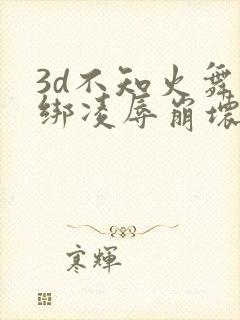 3d不知火舞
绑凌辱崩坏
寒輝